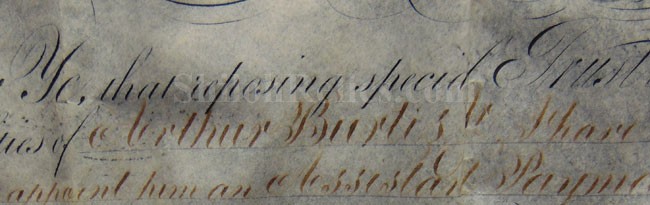 Ye, that reposing special Trust
ties of Arthur Burtis Jr, I have
appoint him an Assistant Payma